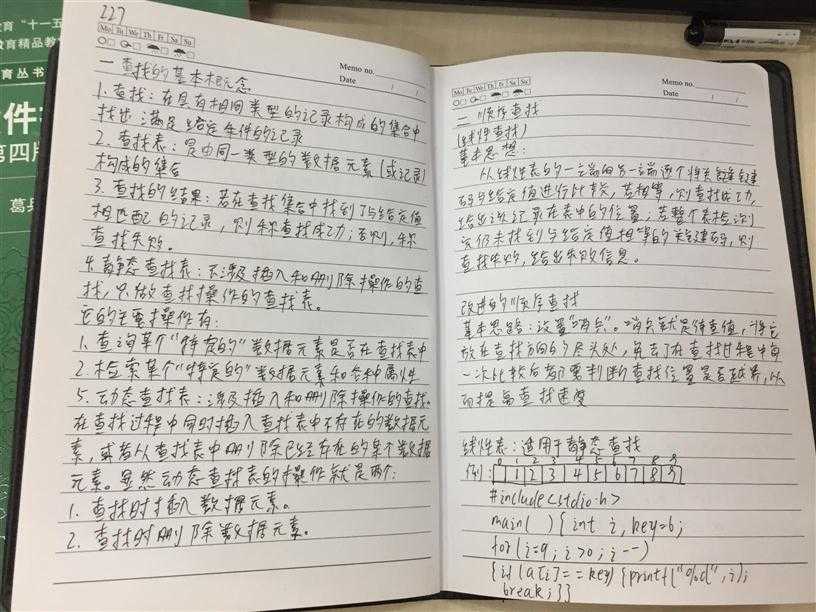 227
育"十一五
教育精品教
育丛书
件
第四版
葛兵
Mo Tu We Th Fr Sa Su
Memo no.
Date / /
一 查找的基本概念
1. 查找：在具有相同类型的记录构成的集合中
找出满足给定条件的记录
2. 查找表：是由同一类型的数据元素(或记录)
构成的集合
3. 查找的结果：若在查找集合中找到了与给定值
相匹配的记录，则称查找成功；否则，称
查找失败。
4. 静态查找表：不涉及插入和删除操作的查
找，只做查找操作的查找表。
它的主要操作有：
1. 查询某个"特定的"数据元素是否在查找表中
2. 检索某个"特定的"数据元素和各种属性
5. 动态查找表：涉及插入和删除操作的查找.
在查找过程中同时插入查找表中不存在的数据元
素，或者从查找表中删除已经存在的某个数据
元素。显然动态查找表的操作就是两个：
1. 查找时插入数据元素。
2. 查找时删除数据元素。
Mo Tu We Th Fr Sa Su
Memo no.
Date / /
二 顺序查找
(线性查找)
基本思想：
从线性表的一端向另一端逐个将关键
码与给定值进行比较，若相等，则查找成功，
给出该记录在表中的位置；若整个表检测
完仍未找到与给定值相等的关键码，则
查找失败，给出失败信息。
改进的顺序查找
基本思路：设置"哨兵"。哨兵就是待查值，将它
放在查找方向的尽头处，免去了在查找过程中每
一次比较后都要判断查找位置是否越界，从
而提高查找速度
线性表：适用于静态查找
0 1 2 3 4 5 6 7 8 9
例： 1 2 3 4 5 6 7 8 9
#include<stdio.h>
main( ){int i,key=6;
for(i=9;i>0;i--)
{if(a[i]==key){printf("%d",i);
break;}}